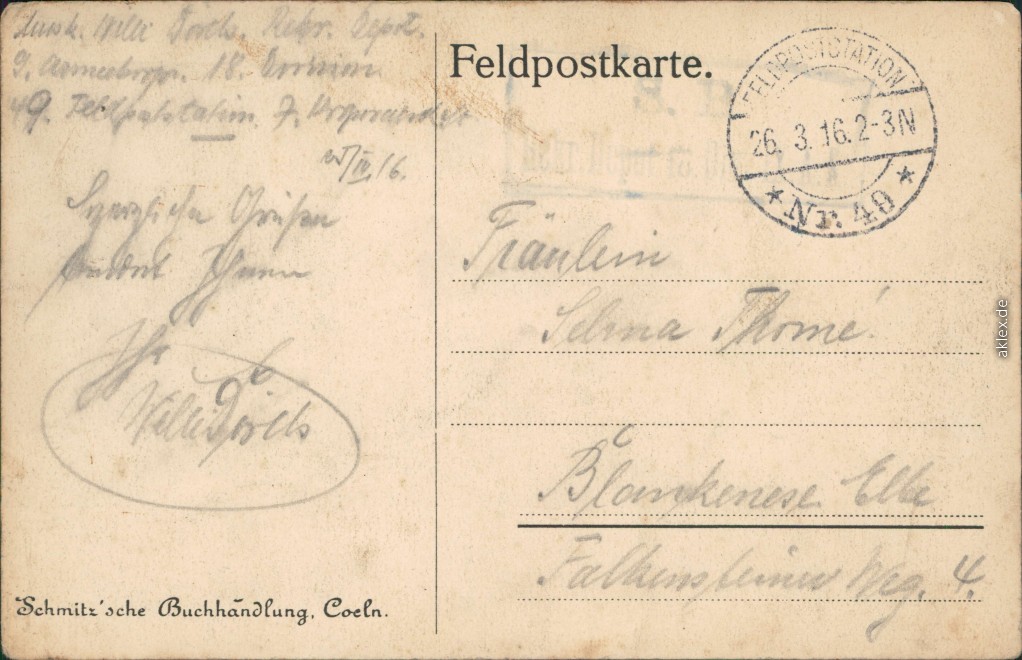 Willi Dords. Rekr. Depot.
9. Armeekorps. 18. Division
49. Feldpoststation. 7. Korporalschaft
25/III.16.
Herzliche Grüße
sendet Ihnen
Ihr
Willi Dords
Schmitz'sche Buchhandlung, Coeln.
Feldpostkarte.
FELDPOSTSTATION
26. 3. 16. 2-3N
* Nr. 49 *
Fräulein
Selma Thomé.
Blankenese Elbe
Falkensteiner Weg. 4.
aklex.de